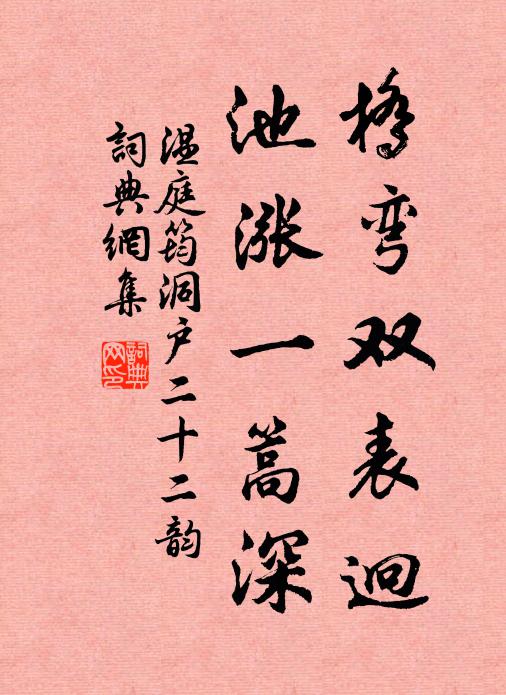 橋弯双表迥
池涨一篙深
温庭筠洞户二十二韵
詞典網集
詞典网印